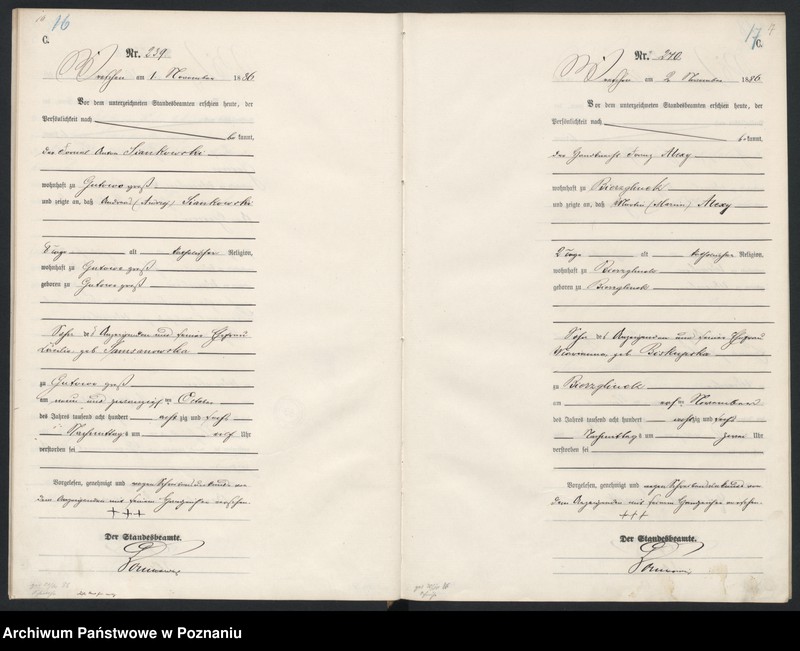 16
C.
Nr. 239
Wreschen am 1 November 1886
Vor dem unterzeichneten Standesbeamten erschien heute, der
Persönlichkeit nach
be kannt,
der Anton Siankowski
wohnhaft zu Gutowo
und zeigte an, daß Andreas (Andrzej) Siankowski
8 Tage alt katholischer Religion,
wohnhaft zu Gutowo
geboren zu Gutowo
Sohn des Anzeigenden und seiner Ehefrau
geb. Samsanowska
zu Gutowo
am neun und zwanzigsten October
des Jahres tausend acht hundert achtzig und sechs
Nachmittags um Uhr
verstorben sei
Vorgelesen, genehmigt und wegen Schreibensunkunde von
dem Anzeigenden mit seinem Handzeichen versehen.
+++
Der Standesbeamte.
17
C.
Nr. 240
Wreschen am 2 November 1886
Vor dem unterzeichneten Standesbeamten erschien heute, der
Persönlichkeit nach
be kannt,
der Franz Alexy
wohnhaft zu Bierzglinek
und zeigte an, daß Martin (Marcin) Alexy
2 Tage alt katholischer Religion,
wohnhaft zu Bierzglinek
geboren zu Bierzglinek
Sohn des Anzeigenden und seiner Ehefrau
Marianna geb. Biskupska
zu Bierzglinek
am November
des Jahres tausend acht hundert achtzig und sechs
Nachmittags um zwei Uhr
verstorben sei
Vorgelesen, genehmigt und wegen Schreibensunkunde von
dem Anzeigenden mit seinem Handzeichen versehen.
+++
Der Standesbeamte.
Archiwum Państwowe w Poznaniu